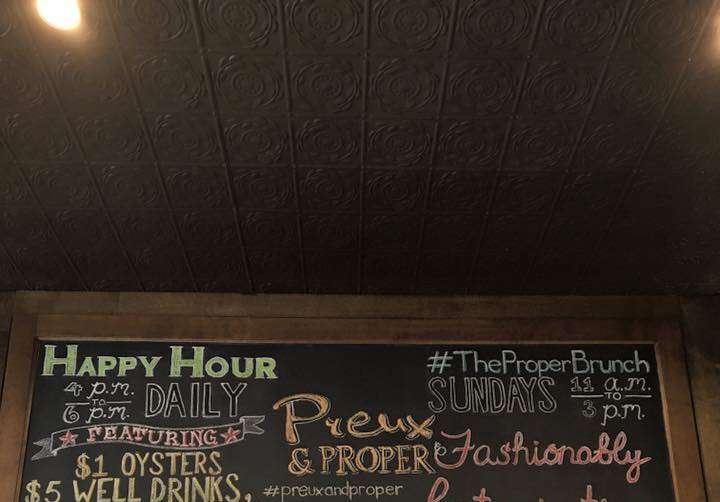 HAPPY HOUR
4 p.m. TO 6 p.m. DAILY
FEATURING
$1 OYSTERS
$5 WELL DRINKS,
Preux
& PROPER
#preuxandproper
#TheProperBrunch
SUNDAYS 11 a.m. TO 3 p.m.
Fashionably